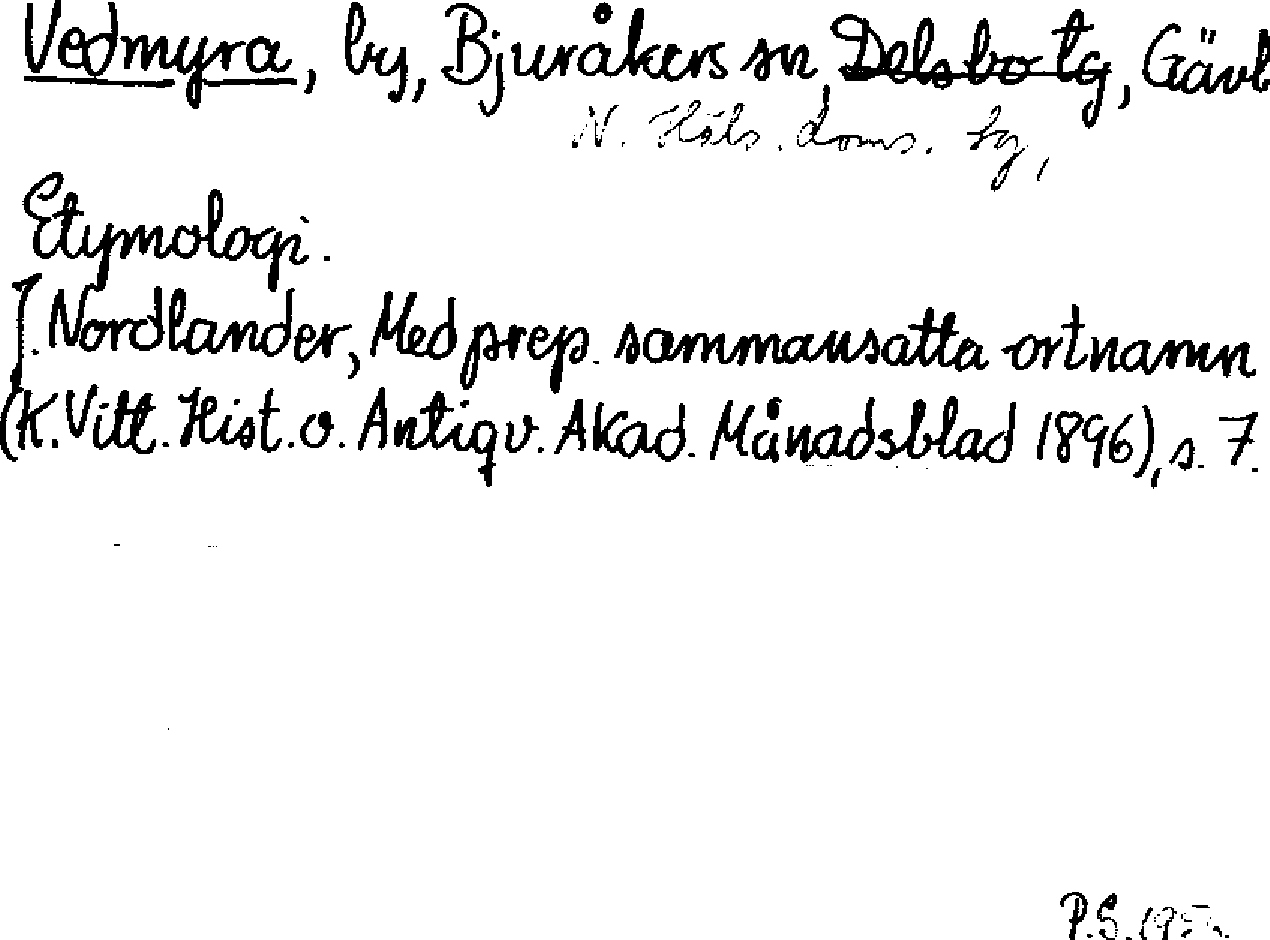 Vedmyra, by, Bjuråkers sn, Delsbo tg, Gävl
N. Häls. doms. tg,
Etymologi.
J. Nordlander, Med prep. sammansatta ortnamn
(K. Vitt. Hist. o. Antiqv. Akad. Månadsblad 1896), s. 7.
P.S.